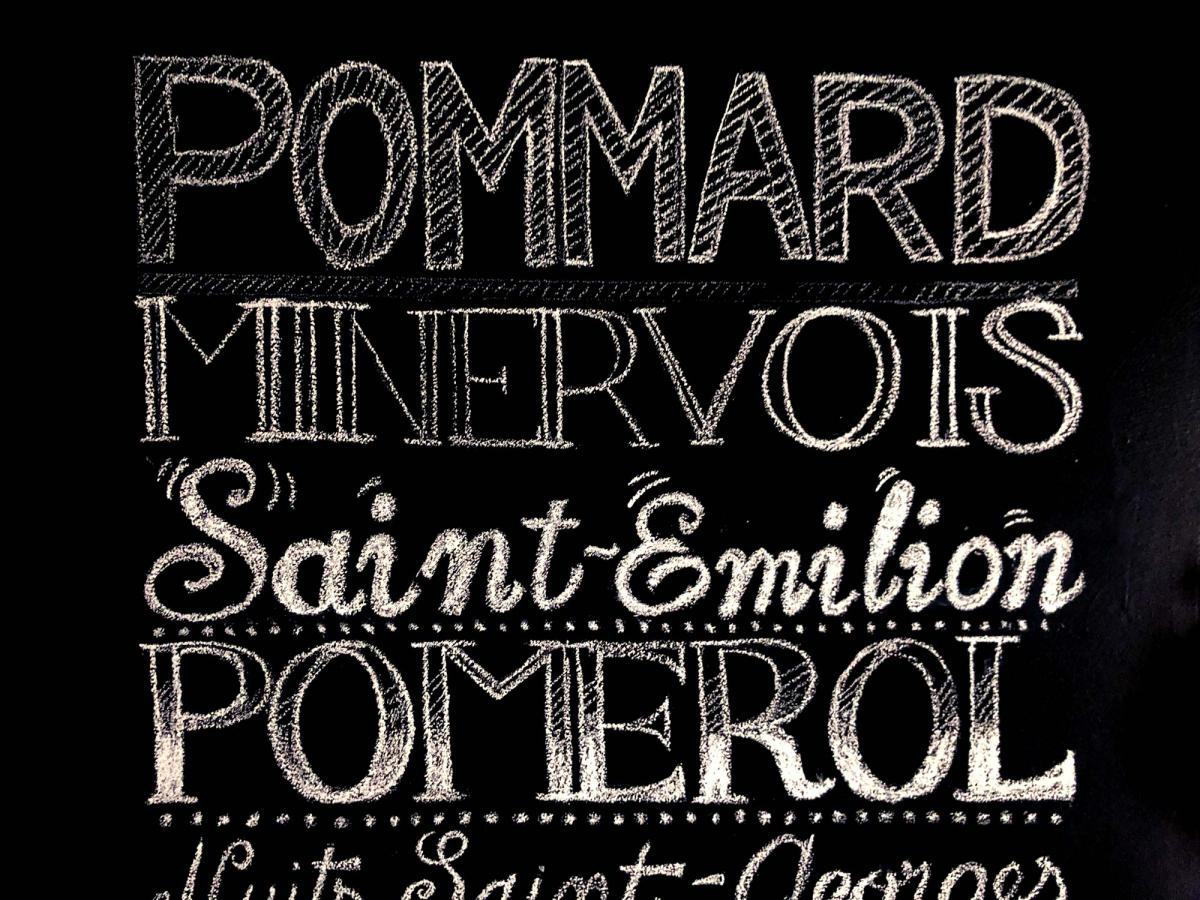 POMMARD
MINERVOIS
Saint-Emilion
POMEROL
Nuits Saint-Georges